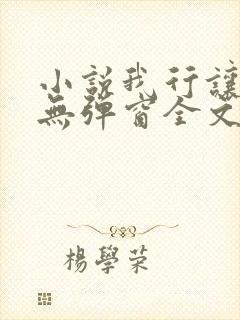 小說我行讓
無彈窗全文
楊學荣